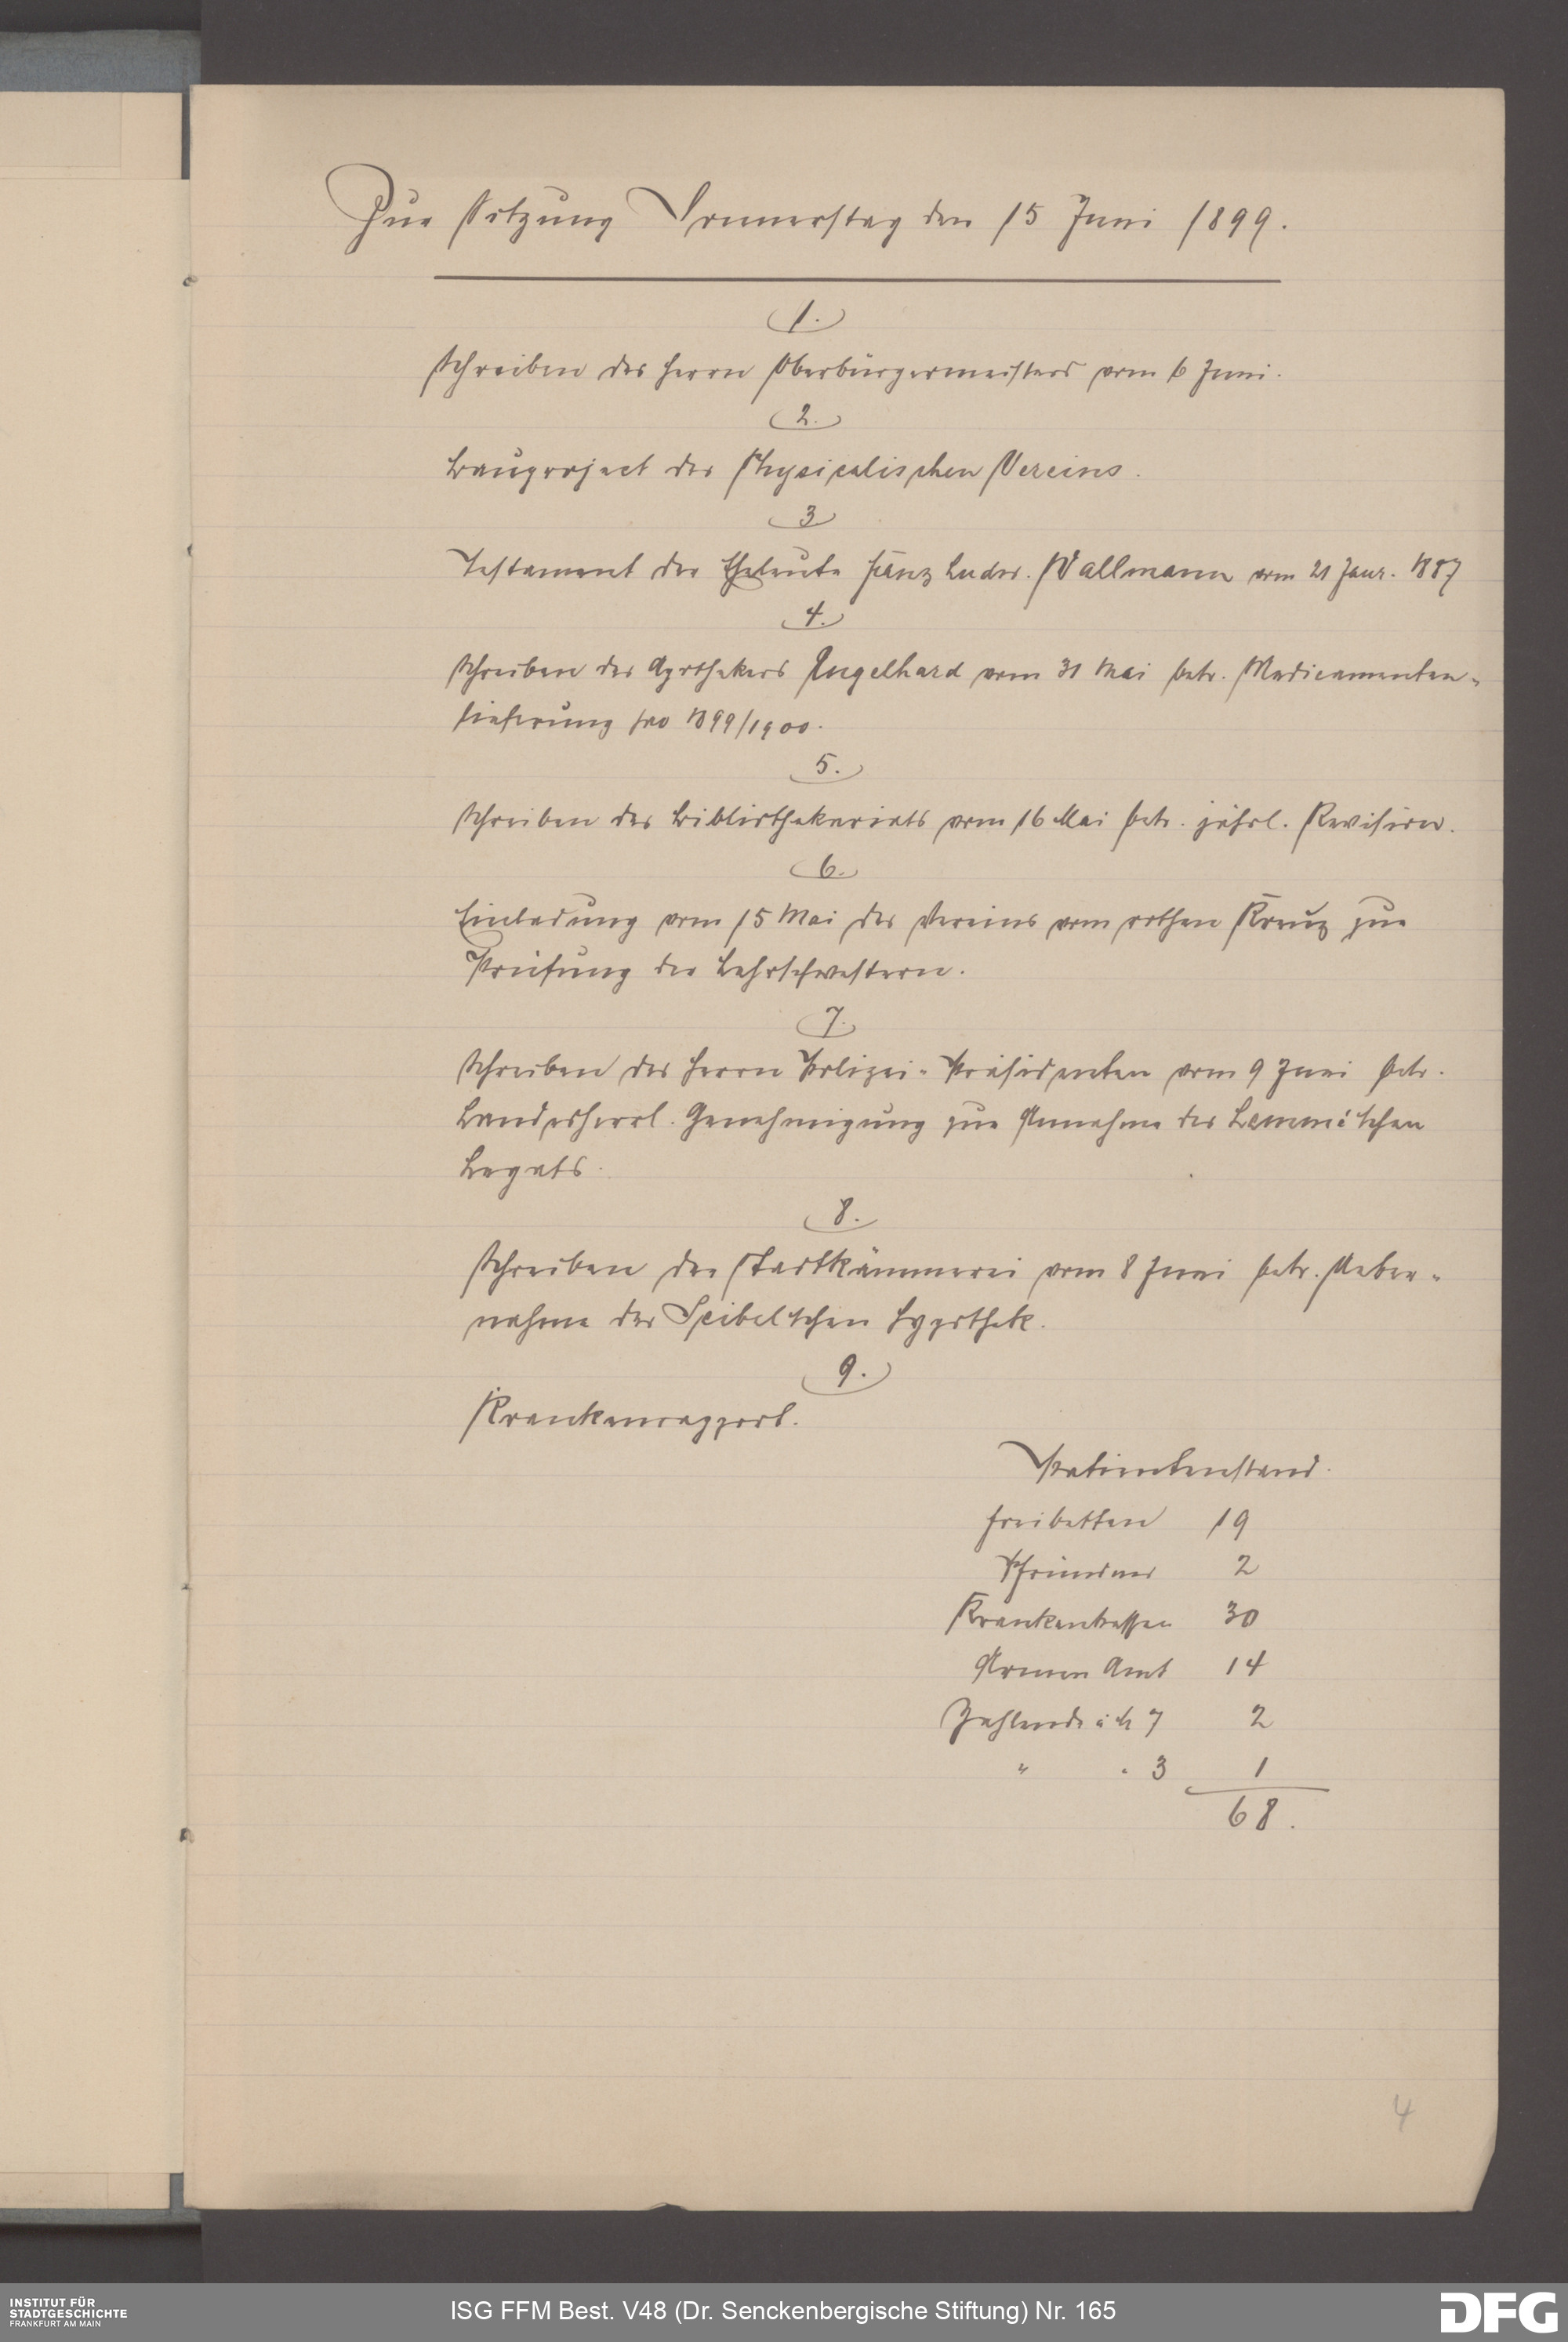 Zur Sitzung Donnerstag den 15 Juni 1899.
1.
Schreiben des Herrn Oberbürgermeisters vom 6 Juni.
2.
Bauproject des Physicalischen Vereins.
3
Testament der Eheleute Franz Ludw. Wallmann vom 21 Janr. 1887
4.
Schreiben des Apothekers Engelhard vom 31 Mai betr. Medicamenten-
lieferung pro 1899/1900.
5.
Schreiben des Bibliothekariats vom 16 Mai betr. jährl. Revision.
6.
Einladung vom 15 Mai des Vereins vom rothen Kreuz zur
Prüfung der Lehrschwestern.
7.
Schreiben des Herrn Polizei-Präsidenten vom 9 Juni betr.
Landesherrl. Genehmigung zur Annahme des Lemmé'schen
Legats.
8.
Schreiben der Stadtkämmerei vom 8 Juni betr. Ueber-
nahme der Scibel'schen Hypothek.
9.
Krankenrapport.
Patientenstand.
Freibetten 19
Pfründner 2
Krankenkassen 30
Armen Amt 14
Zahlende à M 7 2
" " 3 1
68.
4
INSTITUT FÜR
STADTGESCHICHTE
FRANKFURT AM MAIN
ISG FFM Best. V48 (Dr. Senckenbergische Stiftung) Nr. 165
DFG